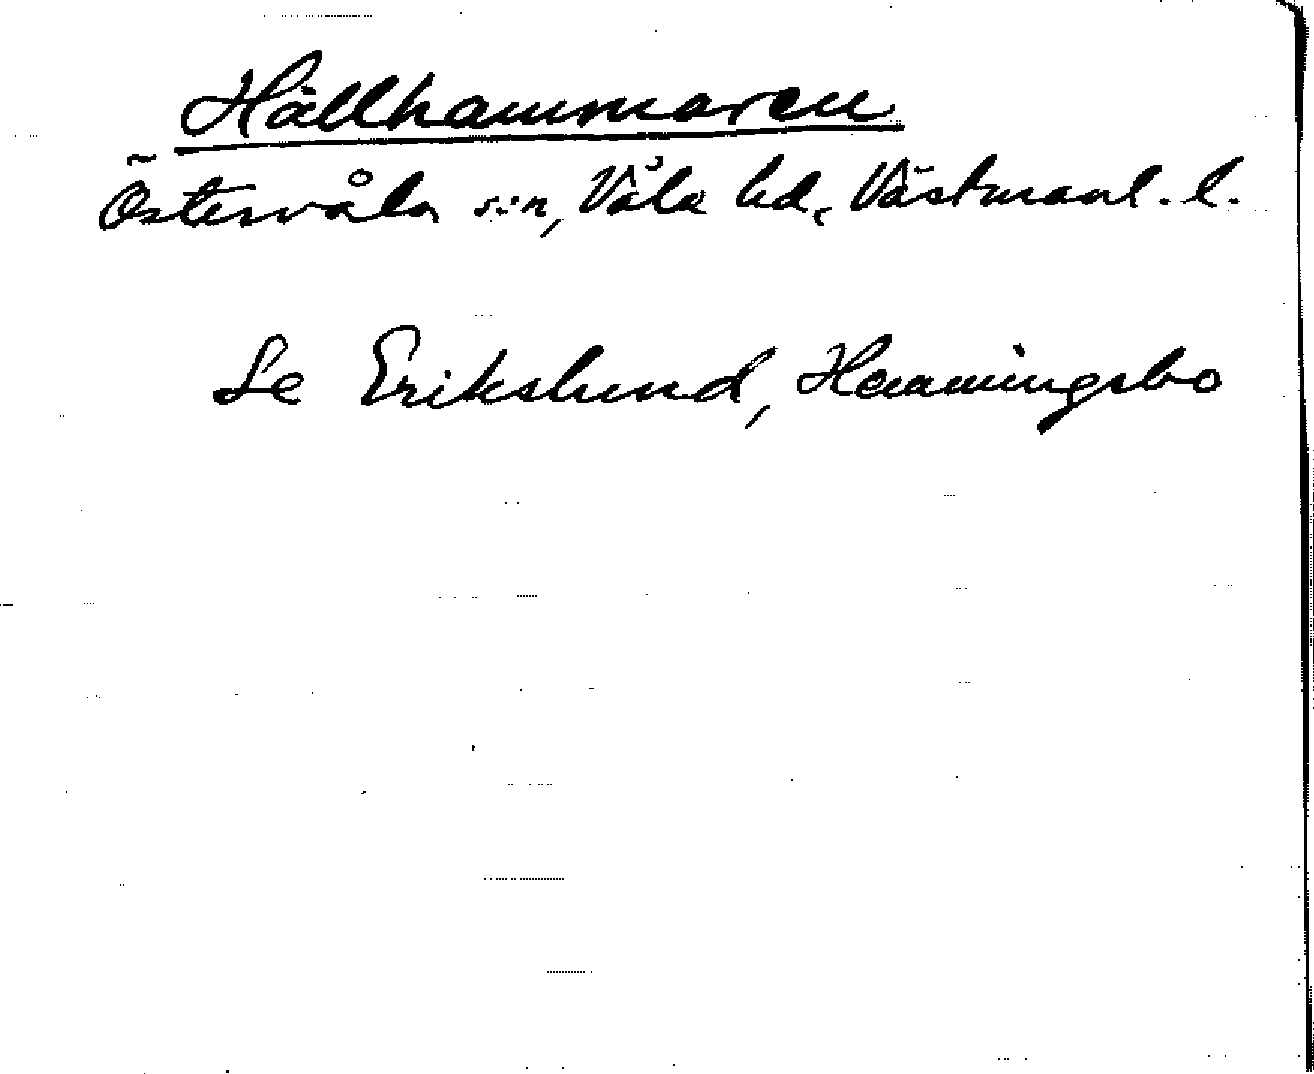 Hällhammaren
Östervåla s:n, Våla hd, Västmanl. l.
Se Erikslund, Hemmingsbo